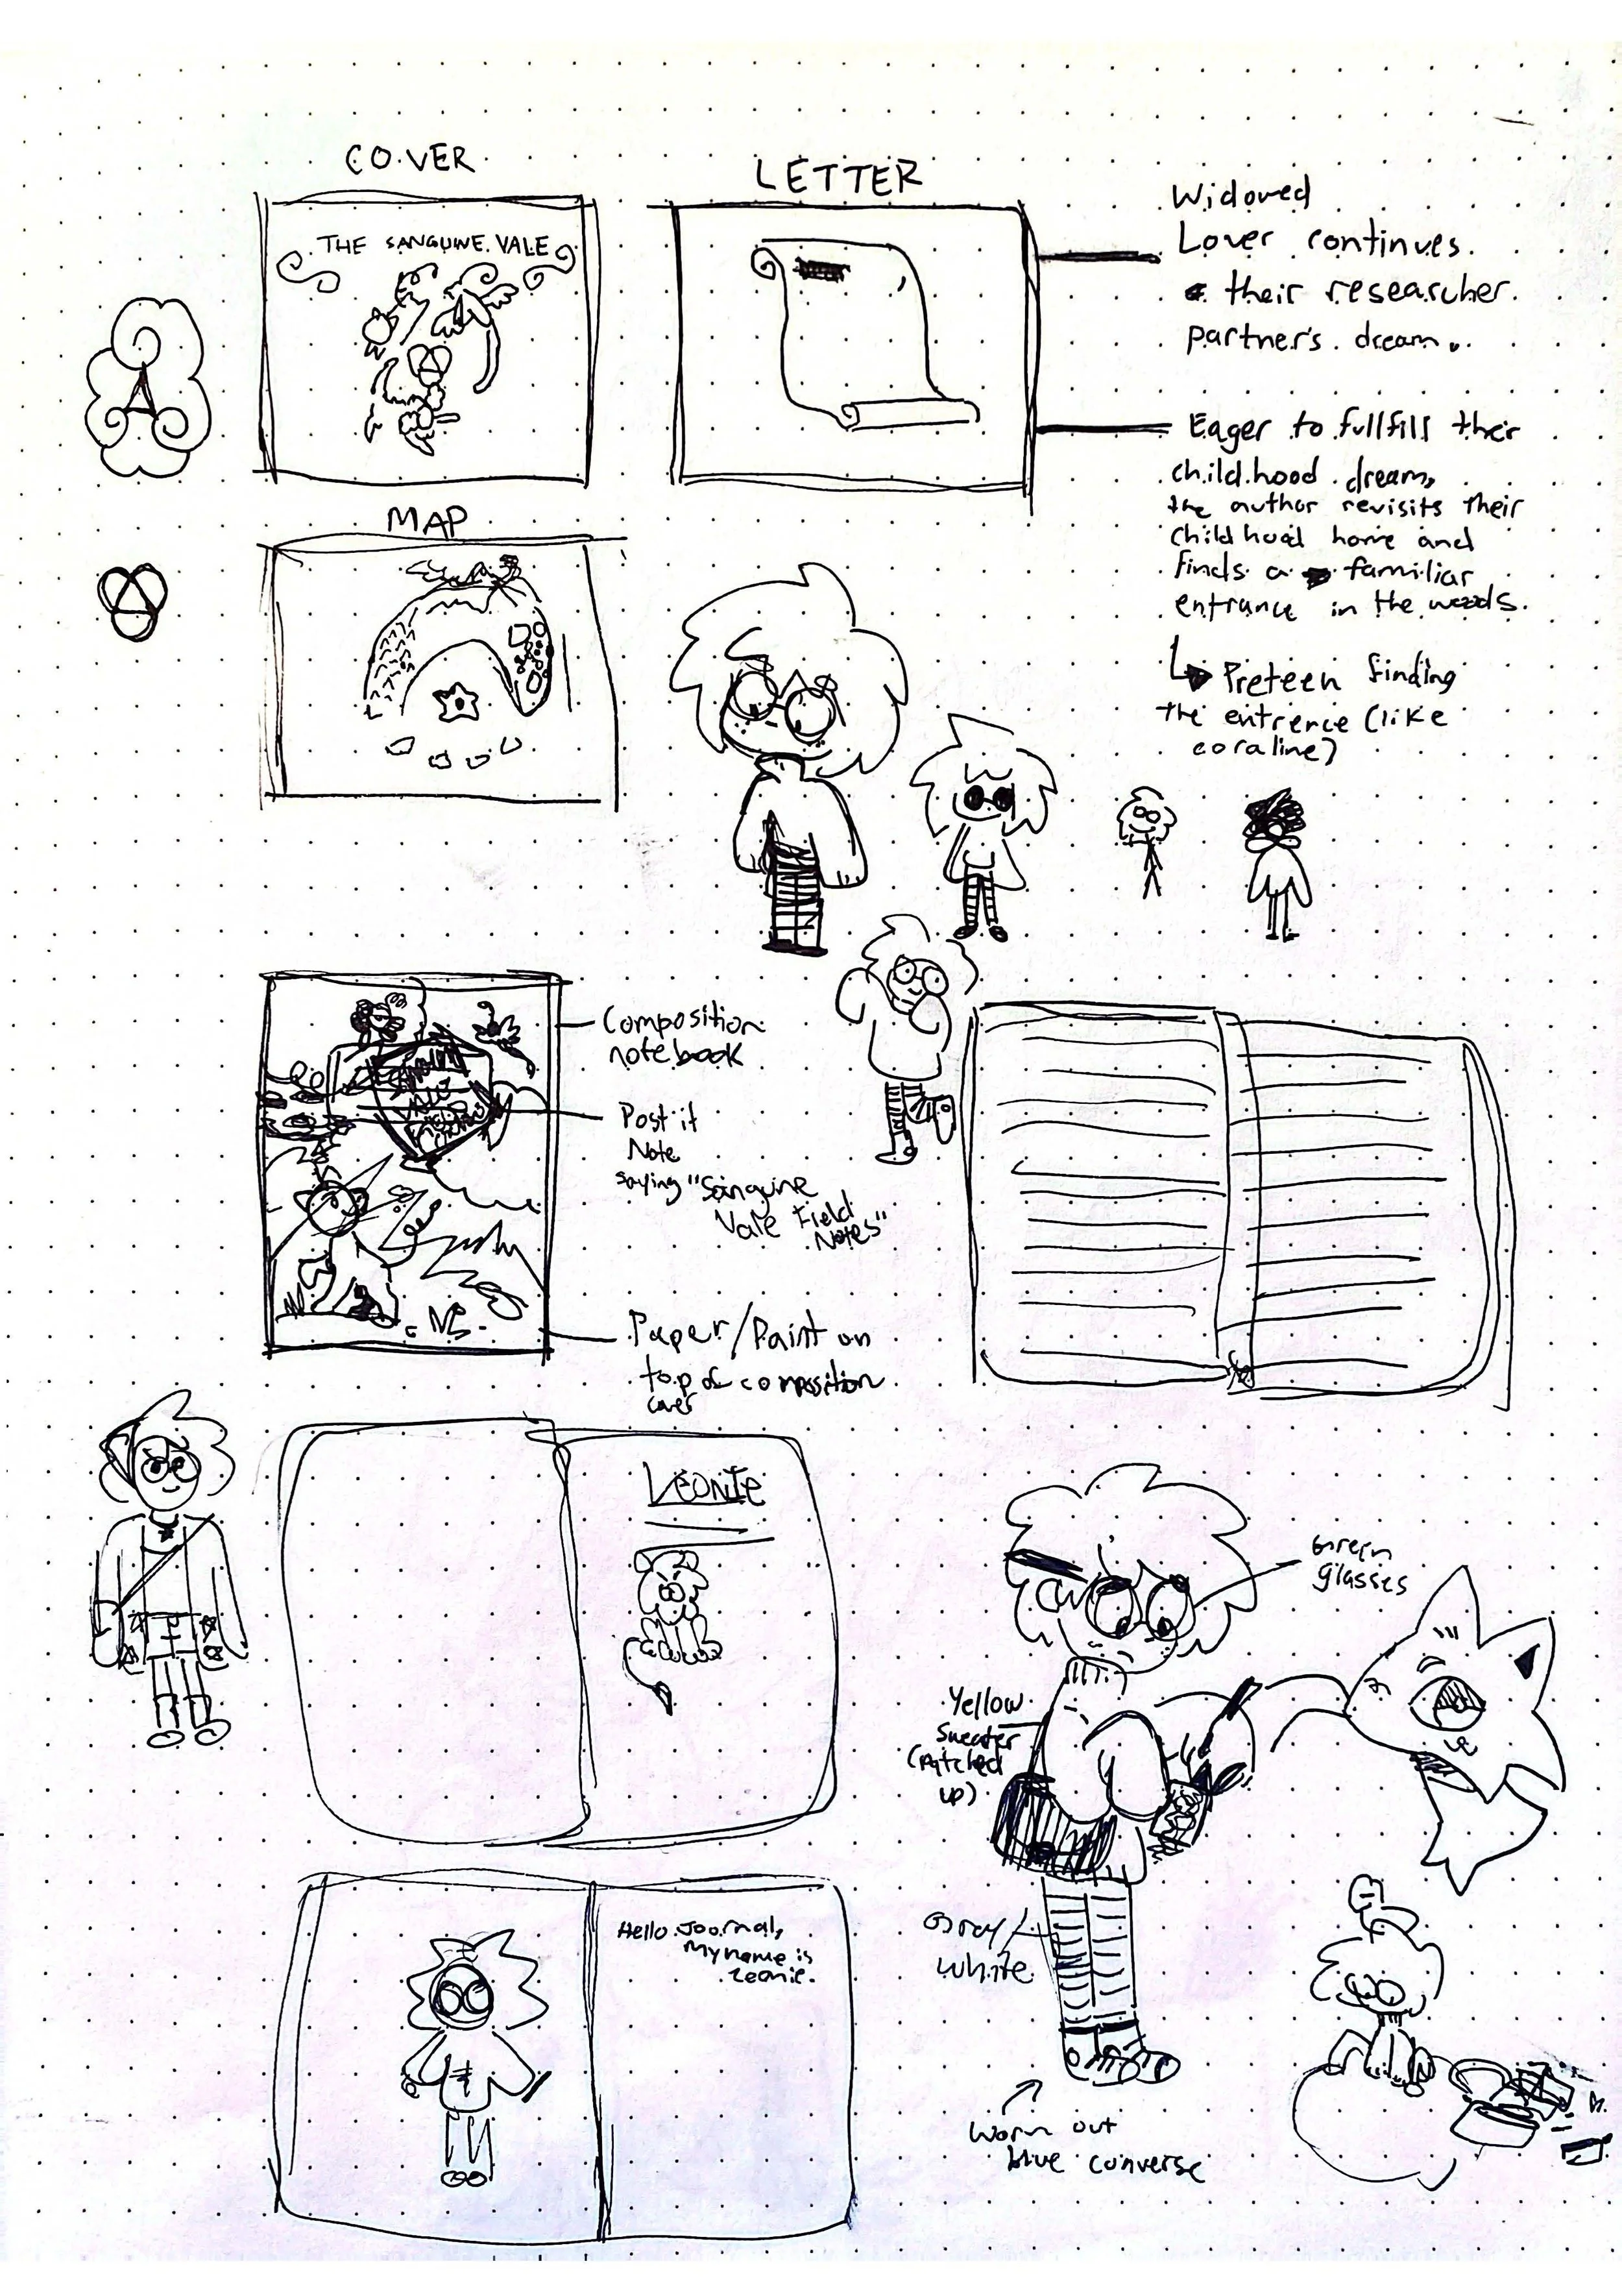 COVER
THE SANGUINE VALE
A
LETTER
Widowed
Lover continues
their researcher
partner's dream.
Eager to fullfill their
childhood dream,
the author revisits their
childhood home and
finds a familiar
entrance in the woods.
Preteen finding
the entrence (like
coraline)
MAP
Composition
notebook
Post it
Note
saying "Sanguine
Vale Field
Notes"
Paper/Paint on
top of composition
cover
Leonie
Hello Journal,
My name is
Leonie.
Green
glasses
Yellow
Sweater
(patched
up)
Gray/
white
Worn out
blue converse